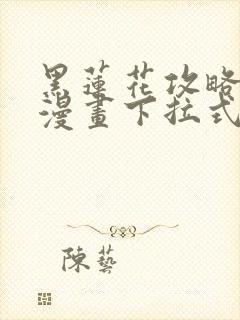 黑蓮花攻略
漫畫下拉式
陳藝